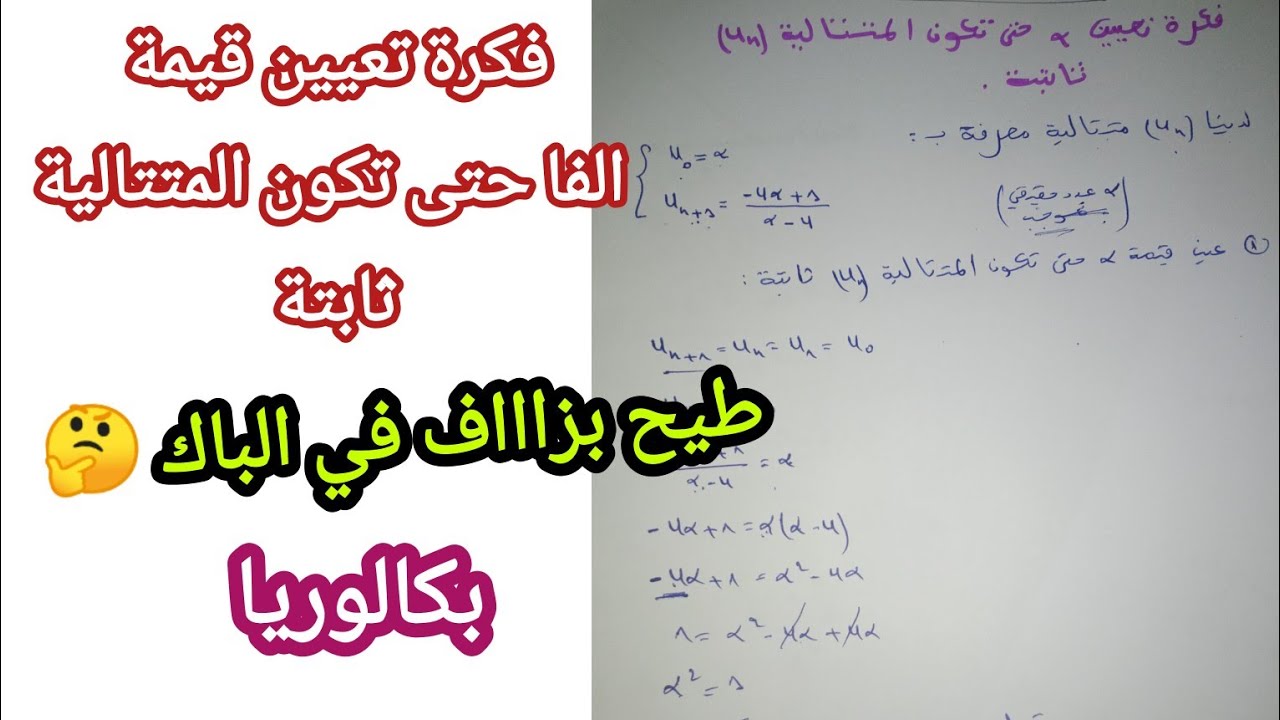 فكرة تعيين قيمة
الفا حتى تكون المتتالية
ثابتة
طيح بزاااف في الباك 🤔
بكالوريا
فكرة تعيين α حتى تكون المتتالية (Uₙ)
ثابتة .
لدينا (Uₙ) متتالية معرفة بـ :
U₀ = α
Uₙ₊₁ = (-4α+1)/(α-4)
(α عدد حقيقي
موجب)
① عين قيمة α حتى تكون المتتالية (Uₙ) ثابتة :
Uₙ₊₁ = Uₙ = U₁ = U₀
/(α-4) = α
-4α+1 = α(α-4)
-4α+1 = α²-4α
1 = α²-4α+4α
α² = 1